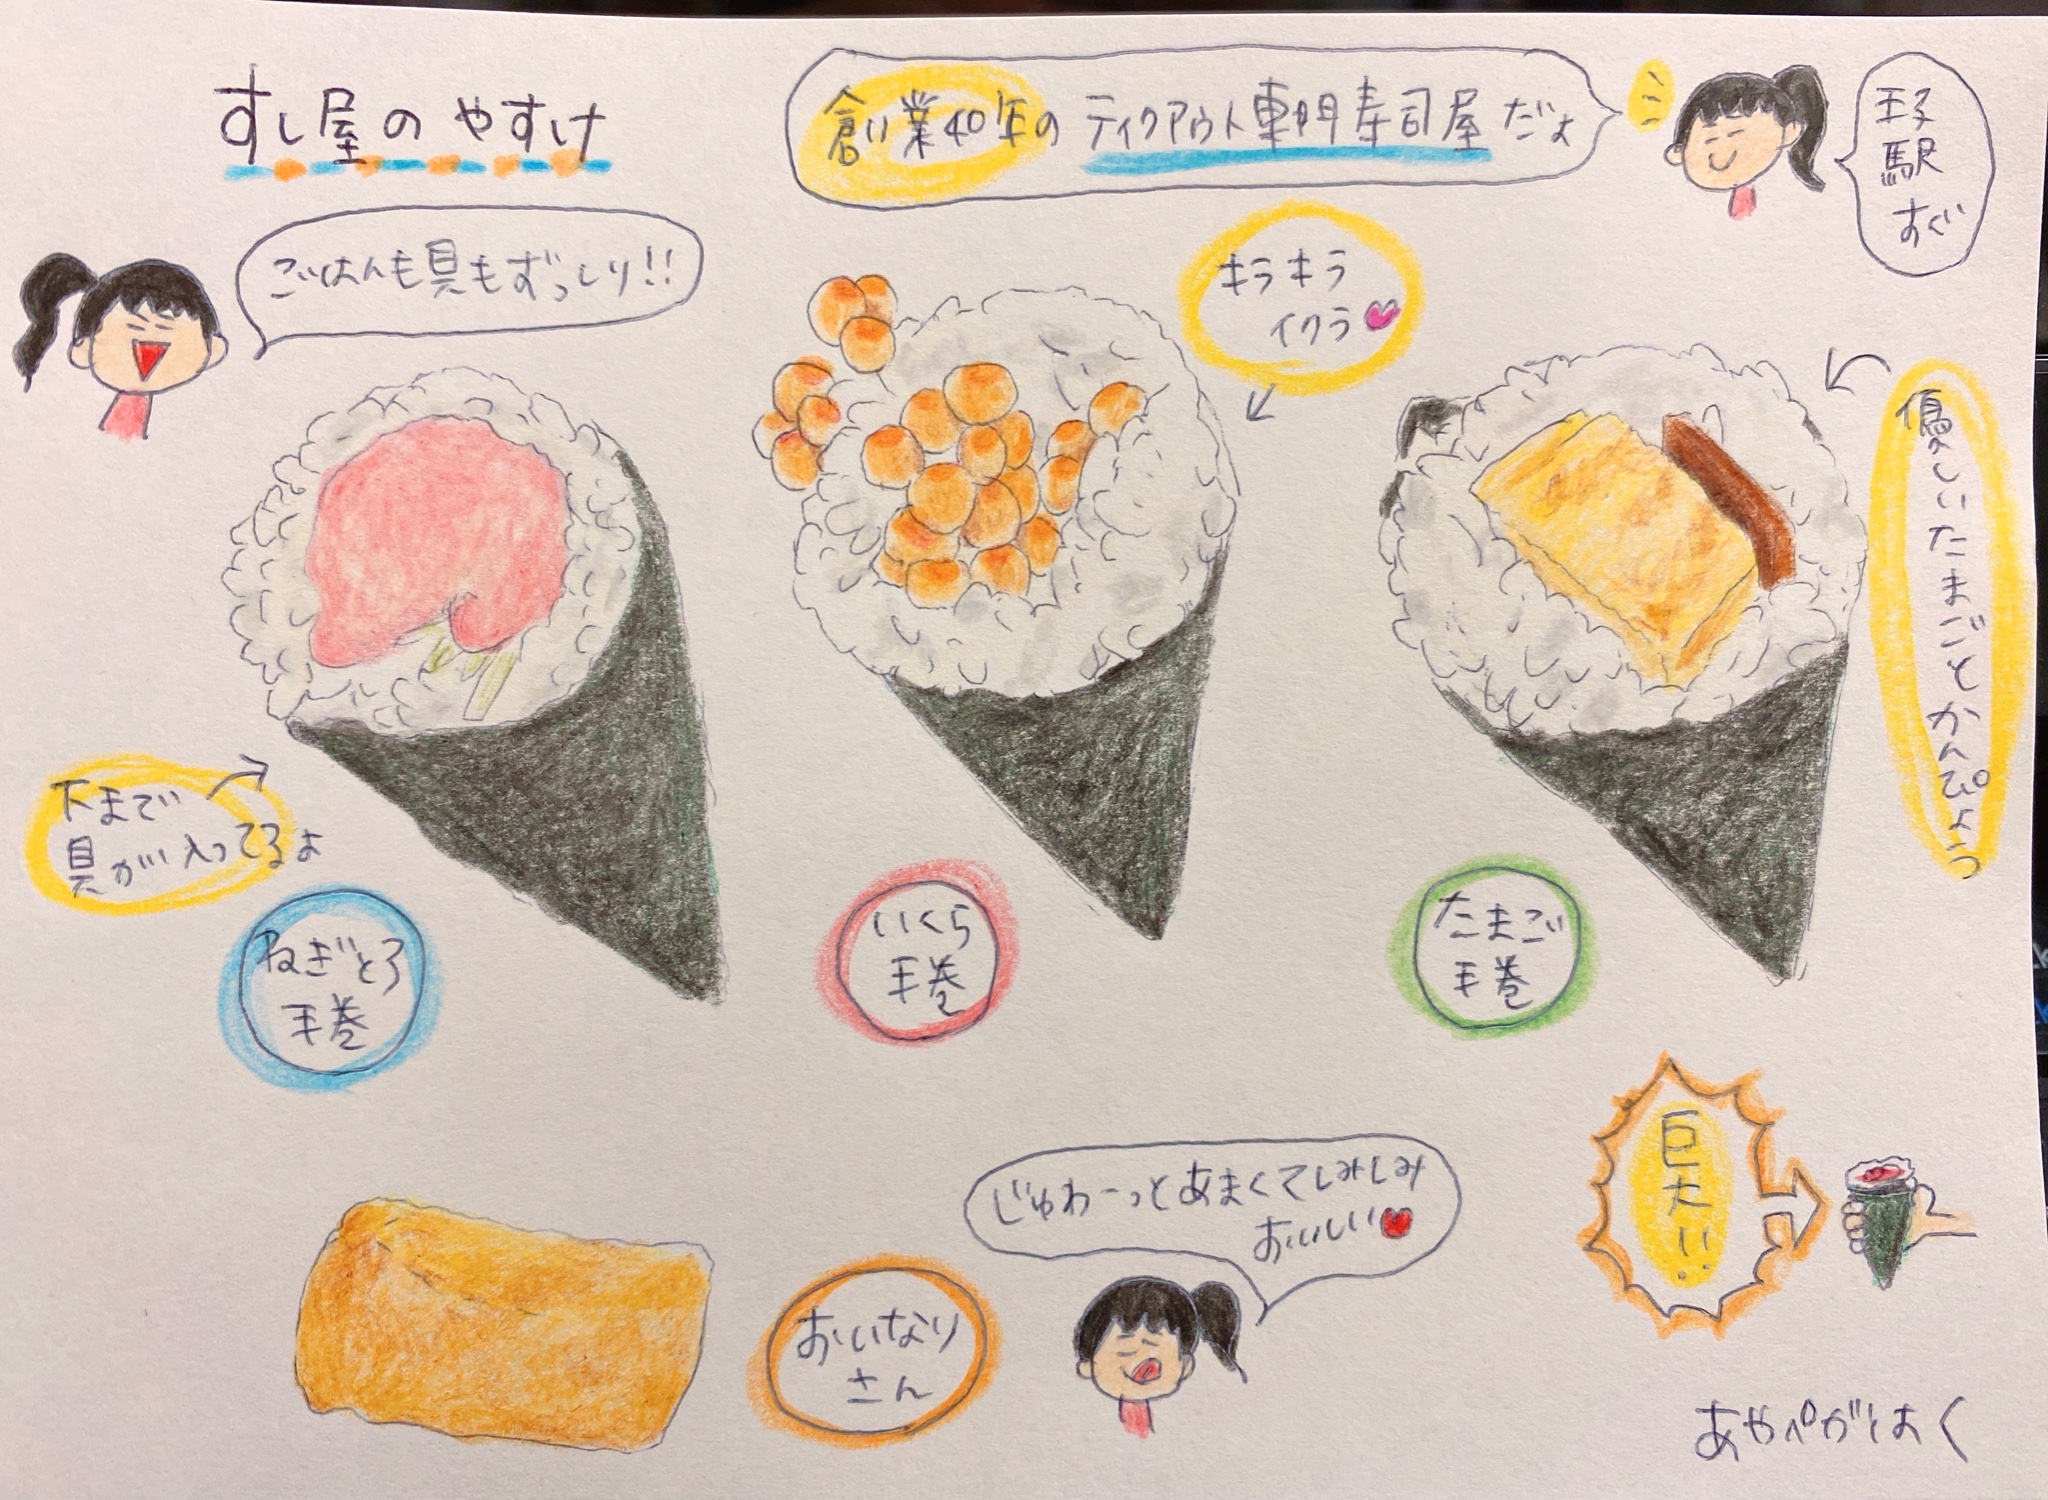 すし屋のやすけ
創業40年のテイクアウト専門寿司屋だよ
王子
駅
すぐ
ごはんも具もずっしり!!
キラキラ
イクラ
優しいたまごとかんぴょう
下まで
具が入ってるよ
ねぎとろ
手巻
いくら
手巻
たまご
手巻
巨大!!
じゅわーっとあまくてしみしみ
おいしい
おいなり
さん
あやぺがとおく